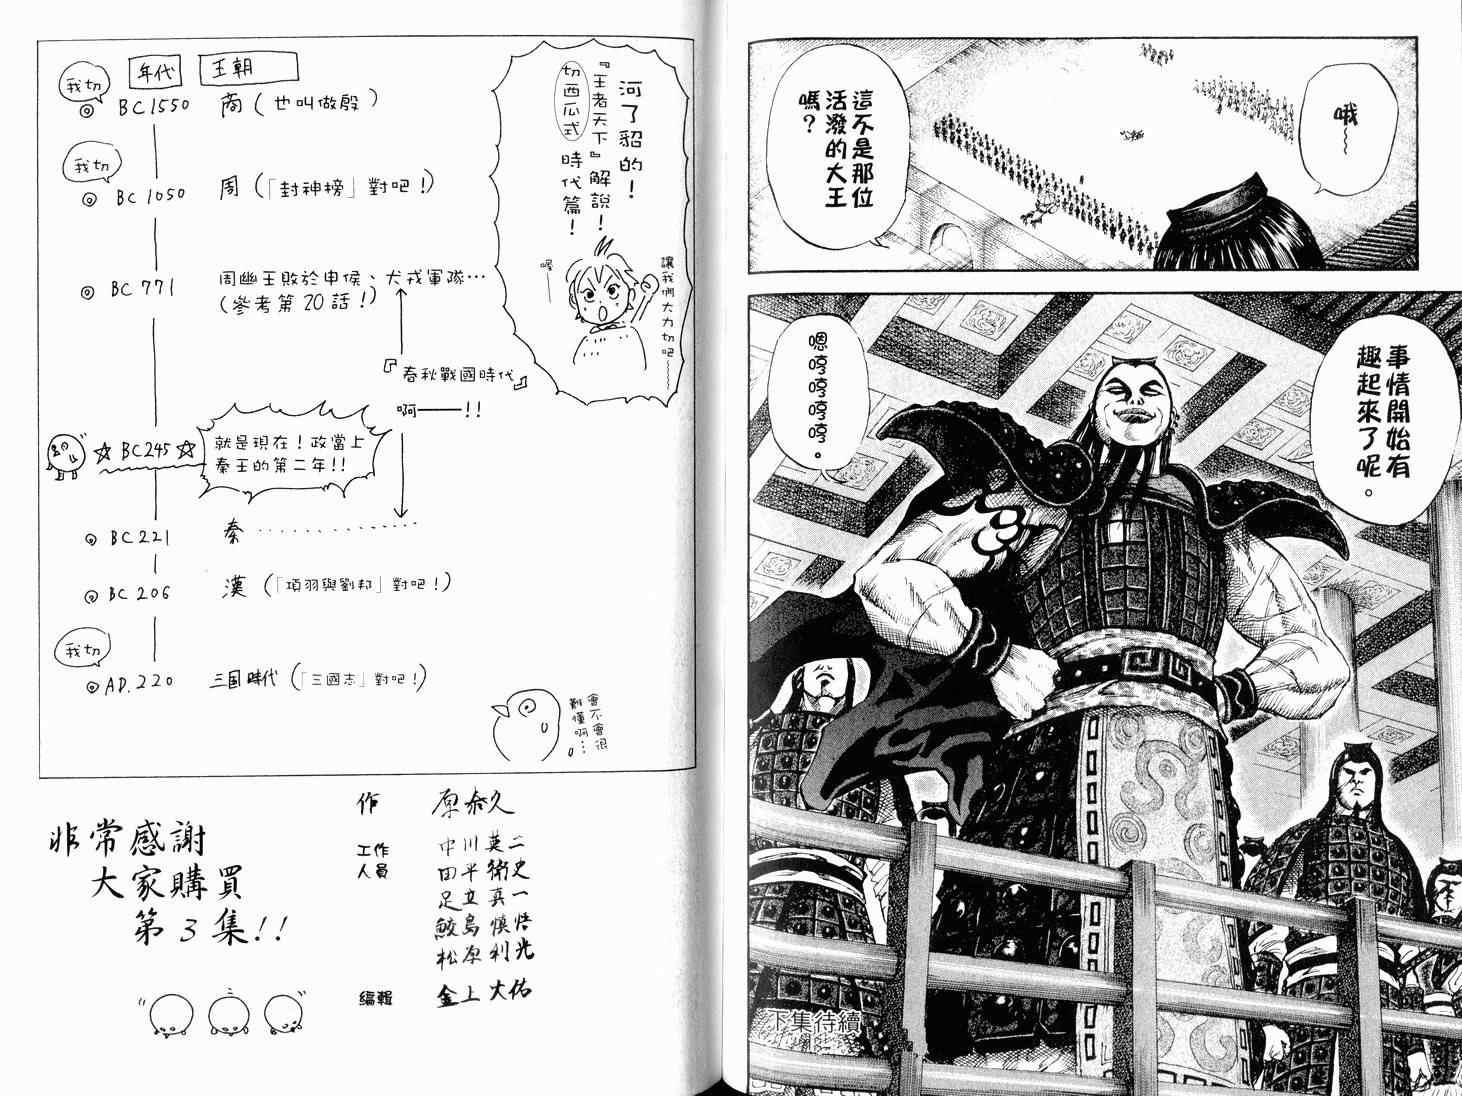 哦～
這不是那位
活潑的大王
嗎？
事情開始有
趣起來了呢。
嗯哼哼哼哼。
下集待續
河了貂的！
『王者天下』解說！
切西瓜式 時代篇！
讓我們大力切吧～
喔——
年代 王朝
我切
◎ BC1550 商（也叫做殷）
我切
◎ BC1050 周（「封神榜」對吧！）
◎ BC771 周幽王敗於申侯、犬戎軍隊…
（參考第20話！）
『春秋戰國時代』
啊——!!
☆BC245☆ 就是現在！政當上
秦王的第二年!!
◎ BC221 秦…………
◎ BC206 漢（「項羽與劉邦」對吧！）
我切
◎ AD.220 三国時代（「三國志」對吧！）
會不會很
難懂啊…
非常感謝
大家購買
第3集!!
作 原泰久
工作
人員
中川英二
田平衛史
足立真一
鮫島慎悟
松原利光
編輯 金上大佑